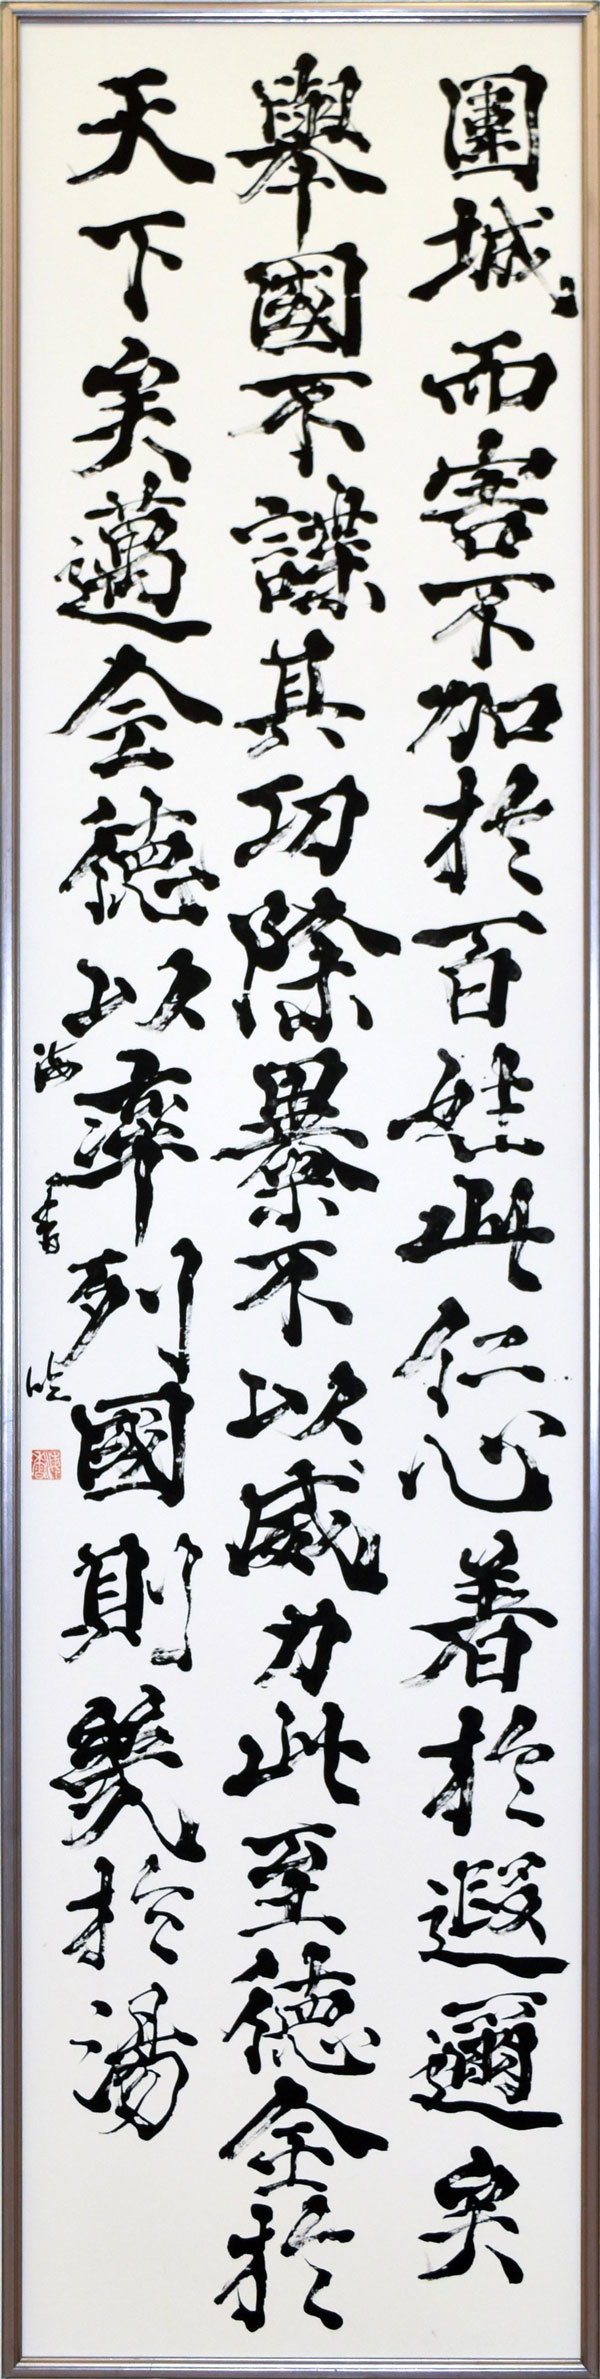 圍城而害不加於百姓此仁心着於遐邇矣
舉國不謀其功除暴不以威力此至德全於
天下矣邁全德以率列國則幾於湯
海書